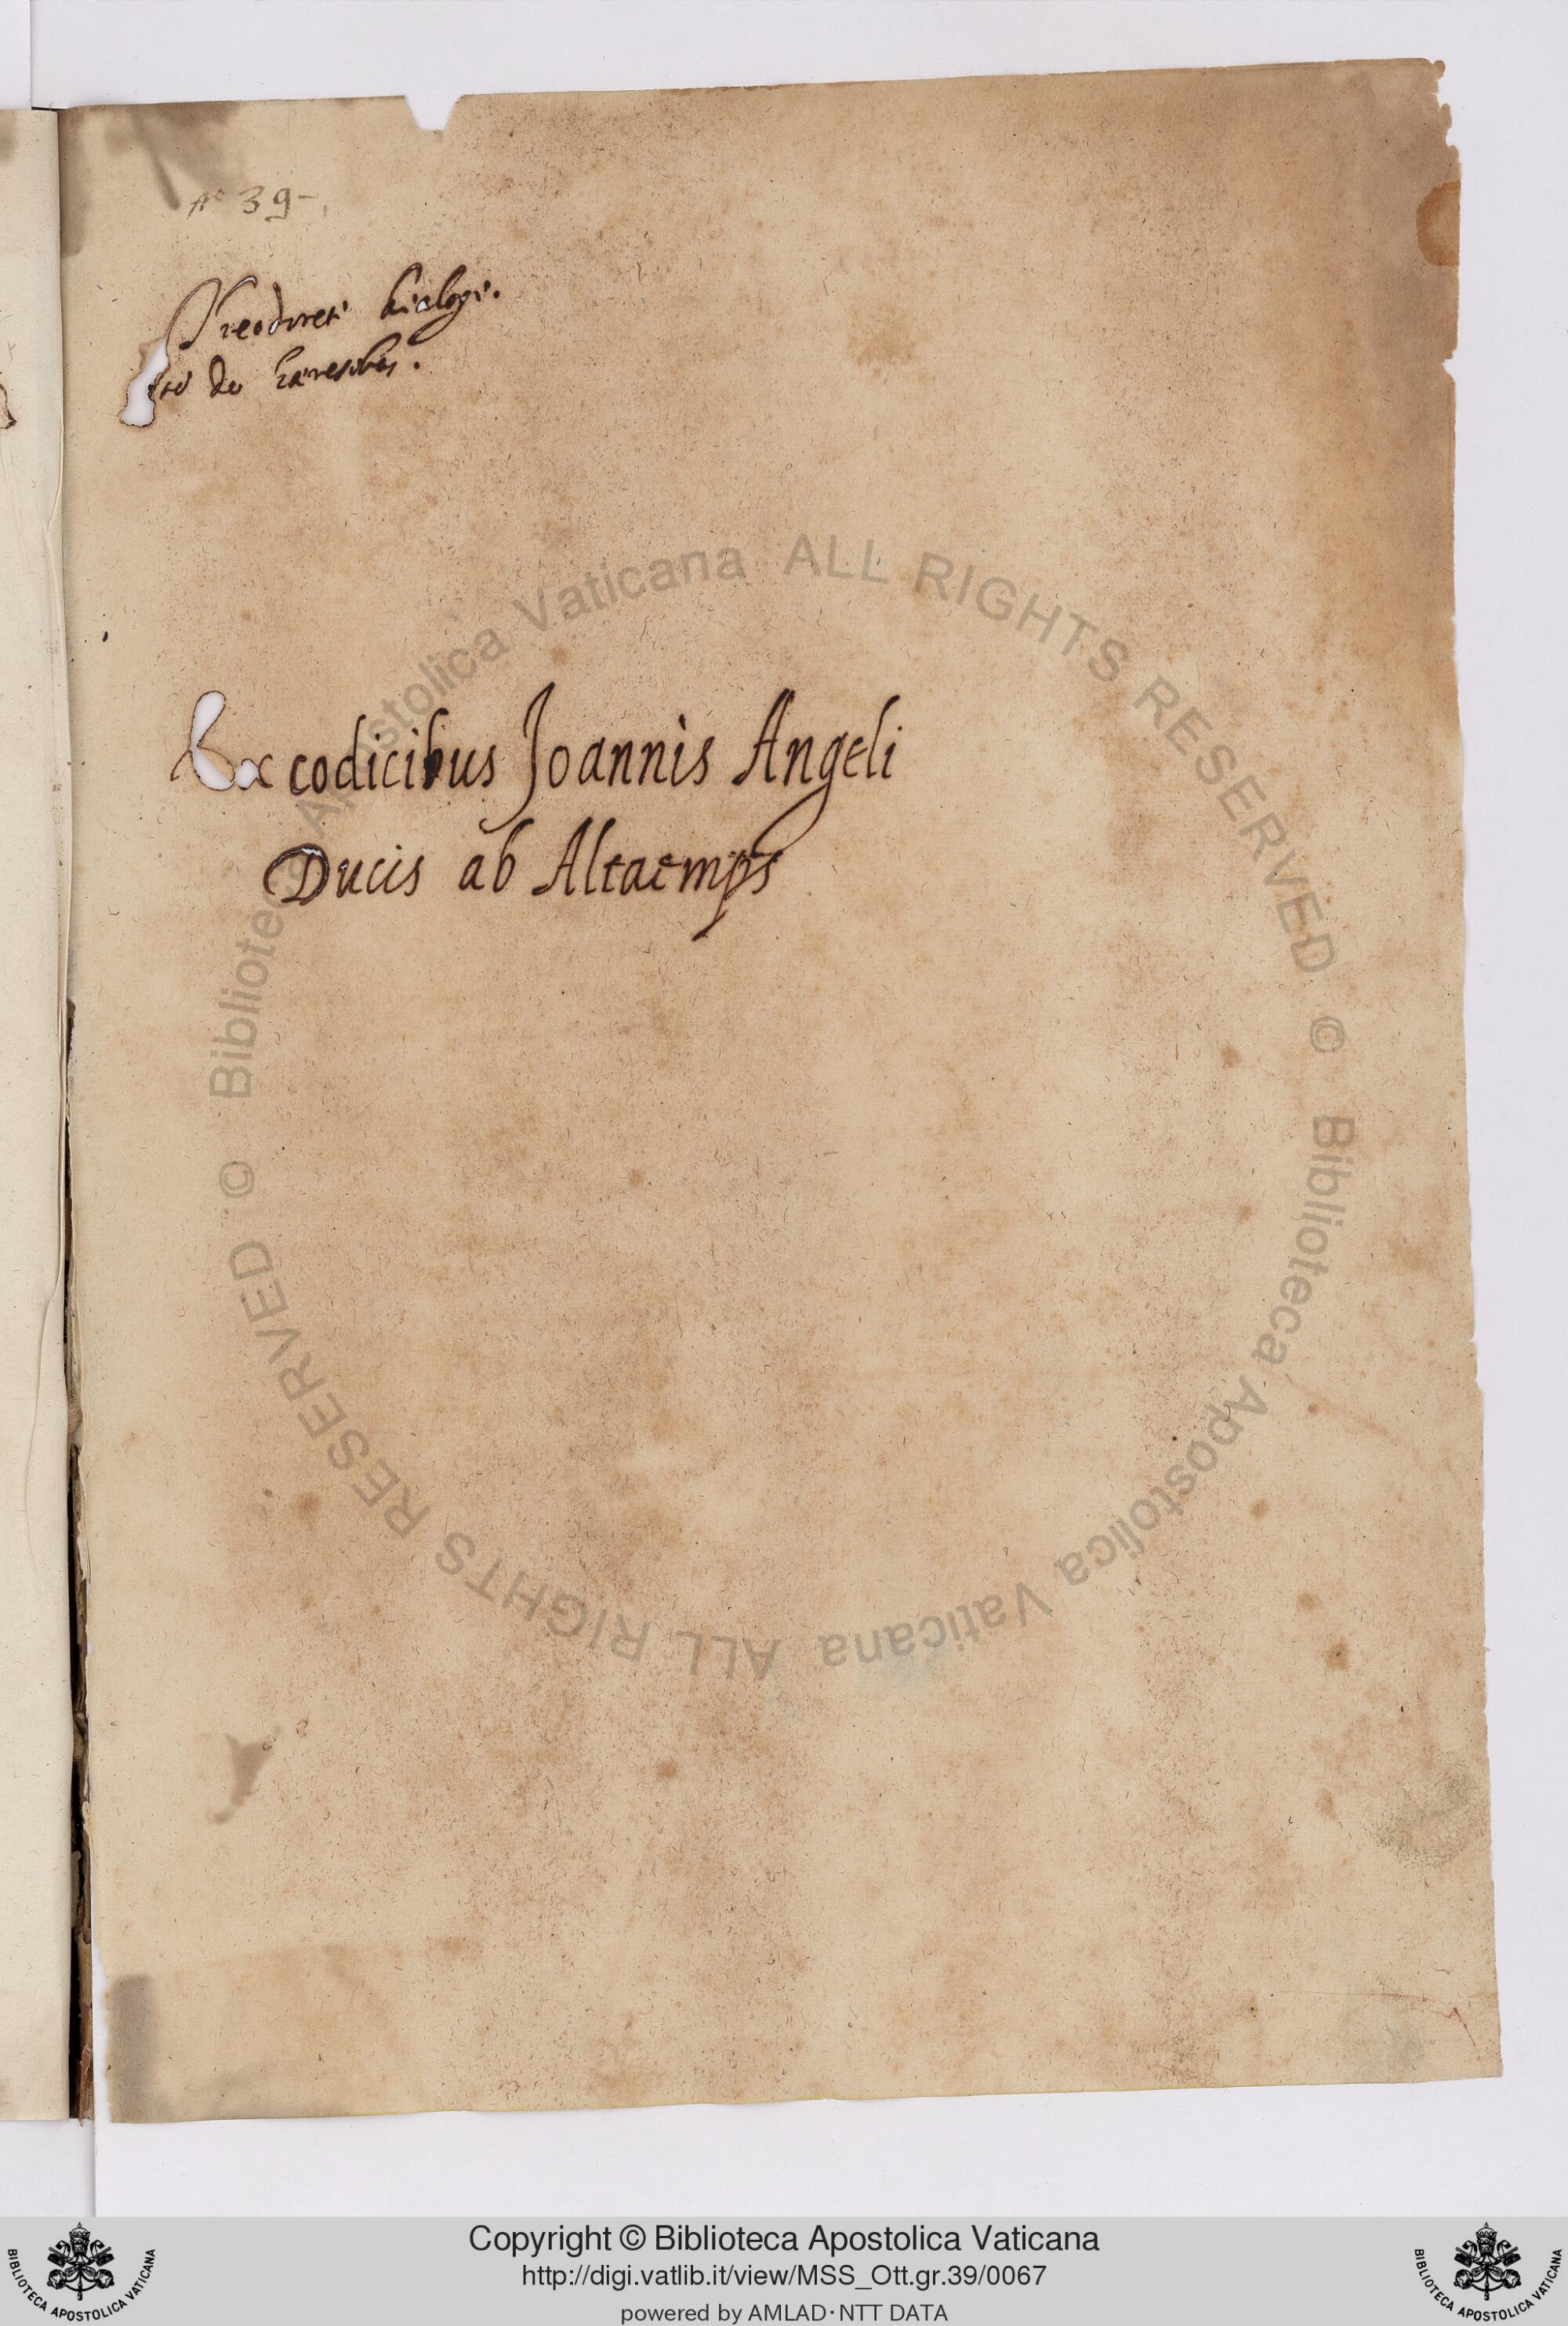 39
Theodoreti dialogi.
de haeresibus.
Ex codicibus Joannis Angeli
Ducis ab Altaemps
© Biblioteca Apostolica Vaticana ALL RIGHTS RESERVED
© Biblioteca Apostolica Vaticana ALL RIGHTS RESERVED
Copyright © Biblioteca Apostolica Vaticana
http://digi.vatlib.it/view/MSS_Ott.gr.39/0067
powered by AMLAD·NTT DATA
BIBLIOTECA APOSTOLICA VATICANA
BIBLIOTECA APOSTOLICA VATICANA